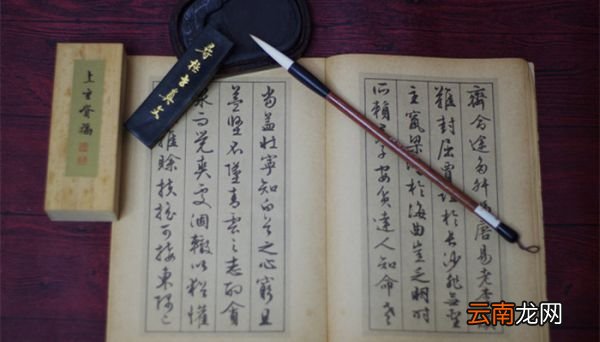 齊命途多舛唐易老李
難封屈賈誼於長沙非無聖
主竄梁於海曲豈乏明時
所賴子安貧達人知命老
當益壯寧知白首之心窮且
益堅不墜青雲之志酌貪
泉而覺爽處涸轍以猶懽
雖賒扶搖可接東隅已
云南龙网